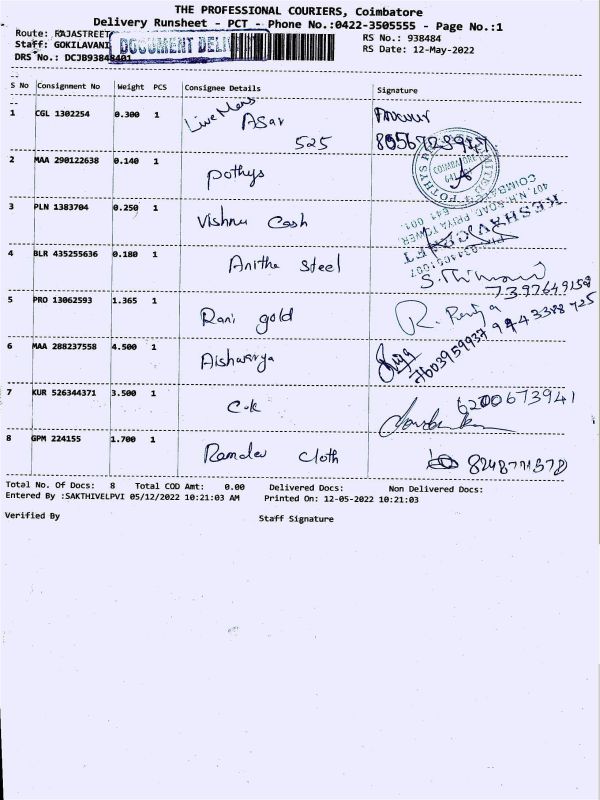 THE PROFESSIONAL COURIERS, Coimbatore
Delivery Runsheet - PCT - Phone No.:0422-3505555 - Page No.:1
Route: RAJASTREET RS No.: 938484
Staff: GOKILAVANI DOCUMENT DELI RS Date: 12-May-2022
DRS No.: DCJB93848401
S No Consignment No Weight PCS Consignee Details Signature
1 CGL 1302254 0.300 1 Live Mens Asar 525
2 MAA 290122638 0.140 1 pothys
3 PLN 1383704 0.250 1 Vishnu Cash
407, N.H. ROAD, PRIYA TOWER,
COIMBATORE 641 001
4 BLR 435255636 0.180 1 Anitha steel
7397649158
5 PRO 13062593 1.365 1 Rani gold R. Priya
9443388725
6 MAA 288237558 4.500 1 Aishwarya
7603959937
7 KUR 526344371 3.500 1 C.K 6200673941
8 GPM 224155 1.700 1 Ramdev Cloth
Total No. Of Docs: 8 Total COD Amt: 0.00 Delivered Docs: Non Delivered Docs:
Entered By :SAKTHIVELPVI 05/12/2022 10:21:03 AM Printed On: 12-05-2022 10:21:03
Verified By Staff Signature